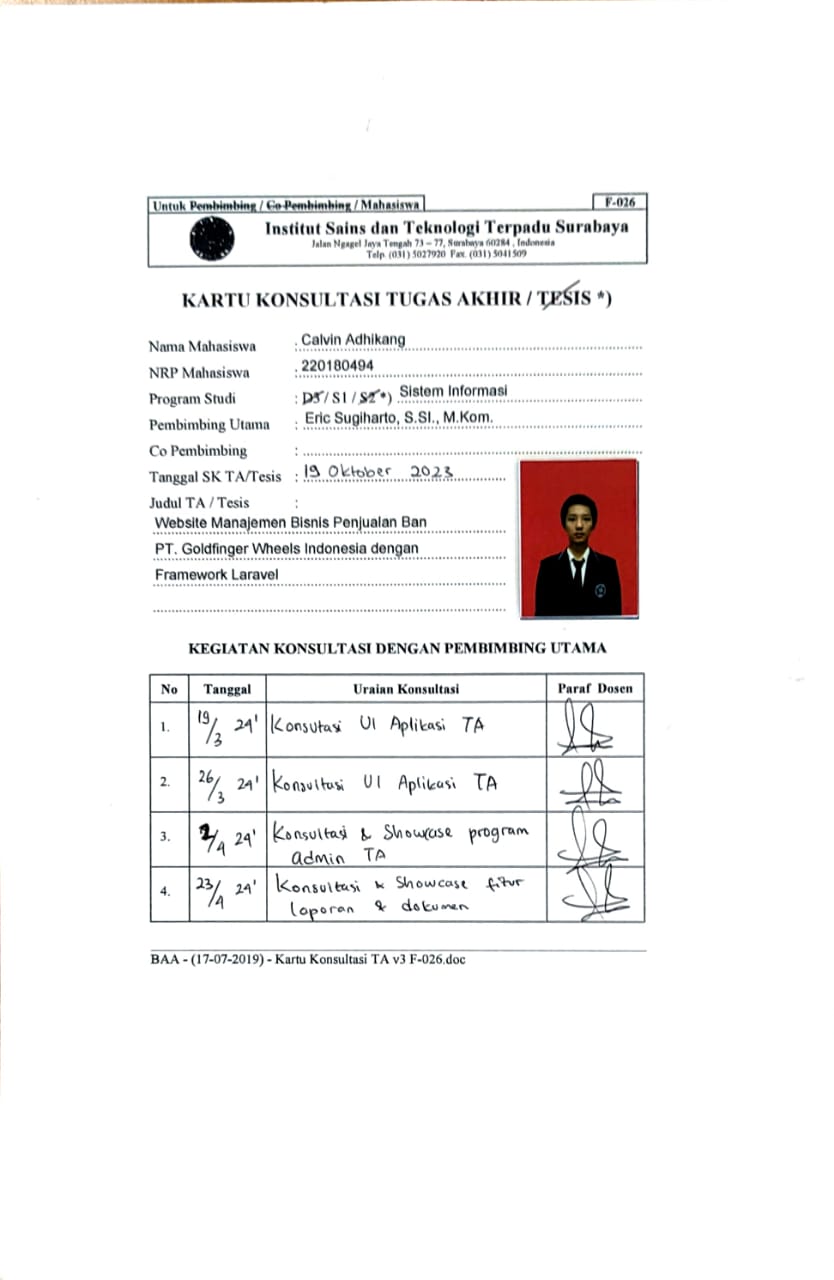 Untuk Pembimbing / Co Pembimbing / Mahasiswa
F-026
Institut Sains dan Teknologi Terpadu Surabaya
Jalan Ngagel Jaya Tengah 73 – 77, Surabaya 60284 , Indonesia
Telp. (031) 5027920 Fax. (031) 5041509
KARTU KONSULTASI TUGAS AKHIR / TESIS *)
Nama Mahasiswa : Calvin Adhikang
NRP Mahasiswa : 220180494
Program Studi : D3 / S1 / S2 *) Sistem Informasi
Pembimbing Utama : Eric Sugiharto, S.SI., M.Kom.
Co Pembimbing :
Tanggal SK TA/Tesis : 19 Oktober 2023
Judul TA / Tesis :
Website Manajemen Bisnis Penjualan Ban
PT. Goldfinger Wheels Indonesia dengan
Framework Laravel
KEGIATAN KONSULTASI DENGAN PEMBIMBING UTAMA
No Tanggal Uraian Konsultasi Paraf Dosen
1. 19/3 24' Konsutasi UI Aplikasi TA
2. 26/3 24' Konsultasi UI Aplikasi TA
3. 2/4 24' Konsultasi & Showcase program
admin TA
4. 23/4 24' Konsultasi & Showcase fitur
laporan & dokumen
BAA - (17-07-2019) - Kartu Konsultasi TA v3 F-026.doc